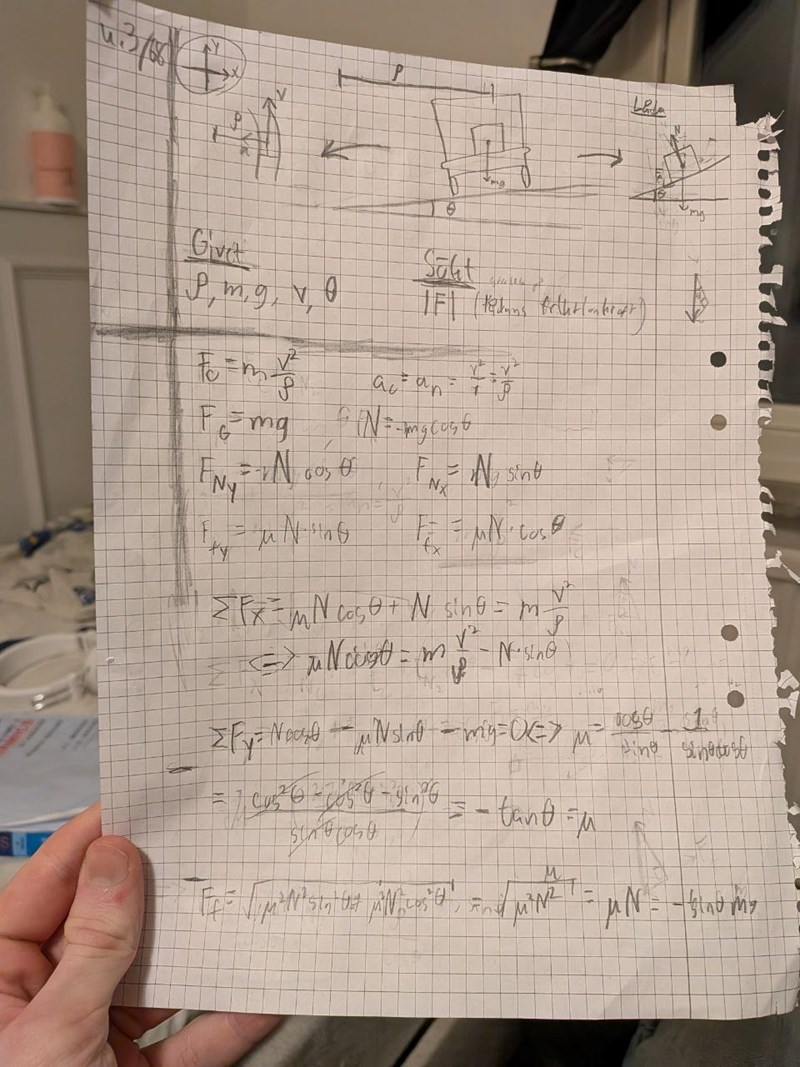 4.3/68
y
x
ρ
v
ρ
mg
θ
N
θ
mg
Givet
ρ, m, g, v, θ
Sökt
|F|
F_c = m v²/ρ
a_c = a_n = v²/r = v²/ρ
F_G = mg
N = -mg cos θ
F_Ny = N cos θ
F_Nx = N sin θ
F_fy = μN·sin θ
F_fx = μN·cos θ
ΣFx = μN cos θ + N sin θ = m v²/ρ
<=> μN cos θ = m v²/ρ - N·sin θ
ΣFy = N cos θ - μN sin θ - mg = 0 <=> μ = cos θ/sin θ - 1/sin θ cos θ
= cos²θ - cos²θ - sin²θ/sin θ cos θ = - tan θ = μ
F_f = √μ²N² sin²θ + μ²N² cos²θ = √μ²N² = μN = - sin θ mg